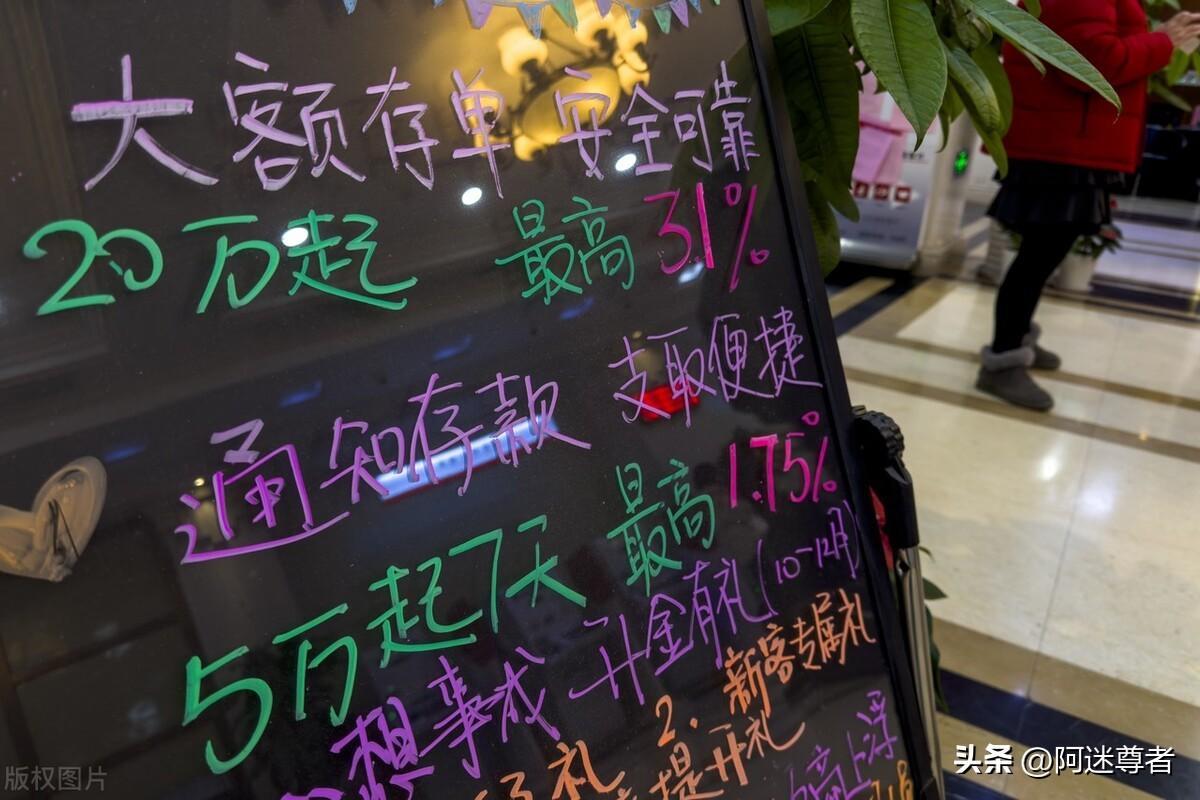 大额存单 安全可靠
20万起 最高 3.1%
通知存款 支取便捷
5万起7天 最高 1.75%
想事成 升金有礼(10-12月)
2. 新客专属礼
礼 提升礼
高上浮
版权图片
头条 @阿迷尊者